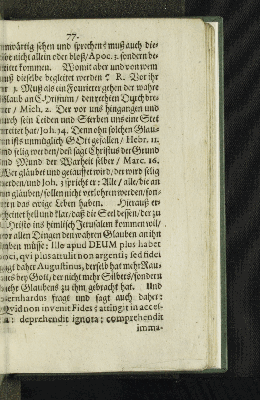 77.
mwärtig sehen und sprechen? muß auch die-
be nicht allein oder bloß/ Apoc. 3. sondern be-
leitet kommen. Womit aber und von wem
muß dieselbe begleitet werden? R. Vor ihr
er 3. Muß als ein Fourierer gehen der wahre
Glaub an Christum / den rechten Durchbre-
er / Mich. 2. Der vor uns hingangen und
urch sein Leiden und Sterben uns eine Stet
ereitet hat / Joh. 14. Denn ohn solchen Glau-
en ists unmöglich GOtt gefallen / Hebr. 11.
nd selig werden / den sagt Christus der Grund
nd Mund der Warheit selber / Marc. 16.
Wer gläubet und getaufft wird / der wird selig
werden / und Joh. 3 spricht er: Alle / alle / die an
hn gläuben / sollen nicht verlohren werden / son-
rn das ewige Leben haben. Hierauß er-
scheinet hell und klar / daß die Seel dessen / der zu
Christo ins himlisch Jerusalem kommen wil /
vor allen Dingen den wahren Glauben an ihn
haben müsse: Ille apud DEUM plus habet
oci, qvi plus attulit non argenti, sed fidei
agt daher Augustinus, derselb hat mehr Rau-
mes bey Gott / der nicht mehr Silbers / sondern
mehr Glaubens zu ihm gebracht hat. Und
Bernhardus fragt und sagt auch daher:
Qvid non invenit Fides? attingit in acces-
a: deprehendit ignota: comprehendit
imma-